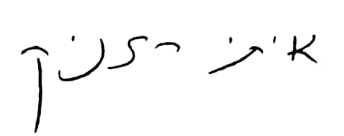 איתי רזניק